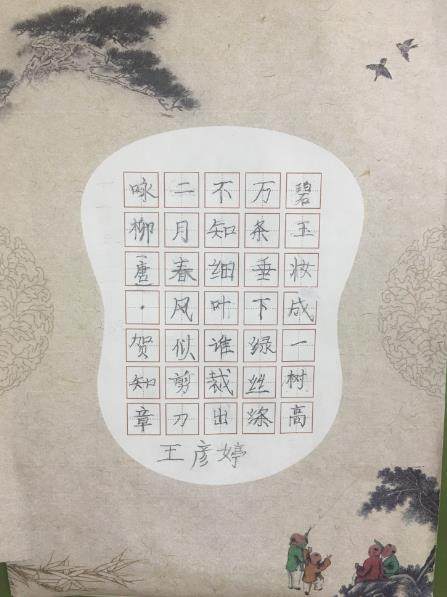 碧玉妆成一树高
万条垂下绿丝绦
不知细叶谁裁出
二月春风似剪刀
咏柳[唐]·贺知章
王彦婷